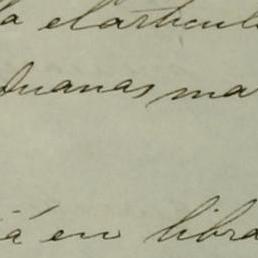 a el articul
duanas ma
iá en libra